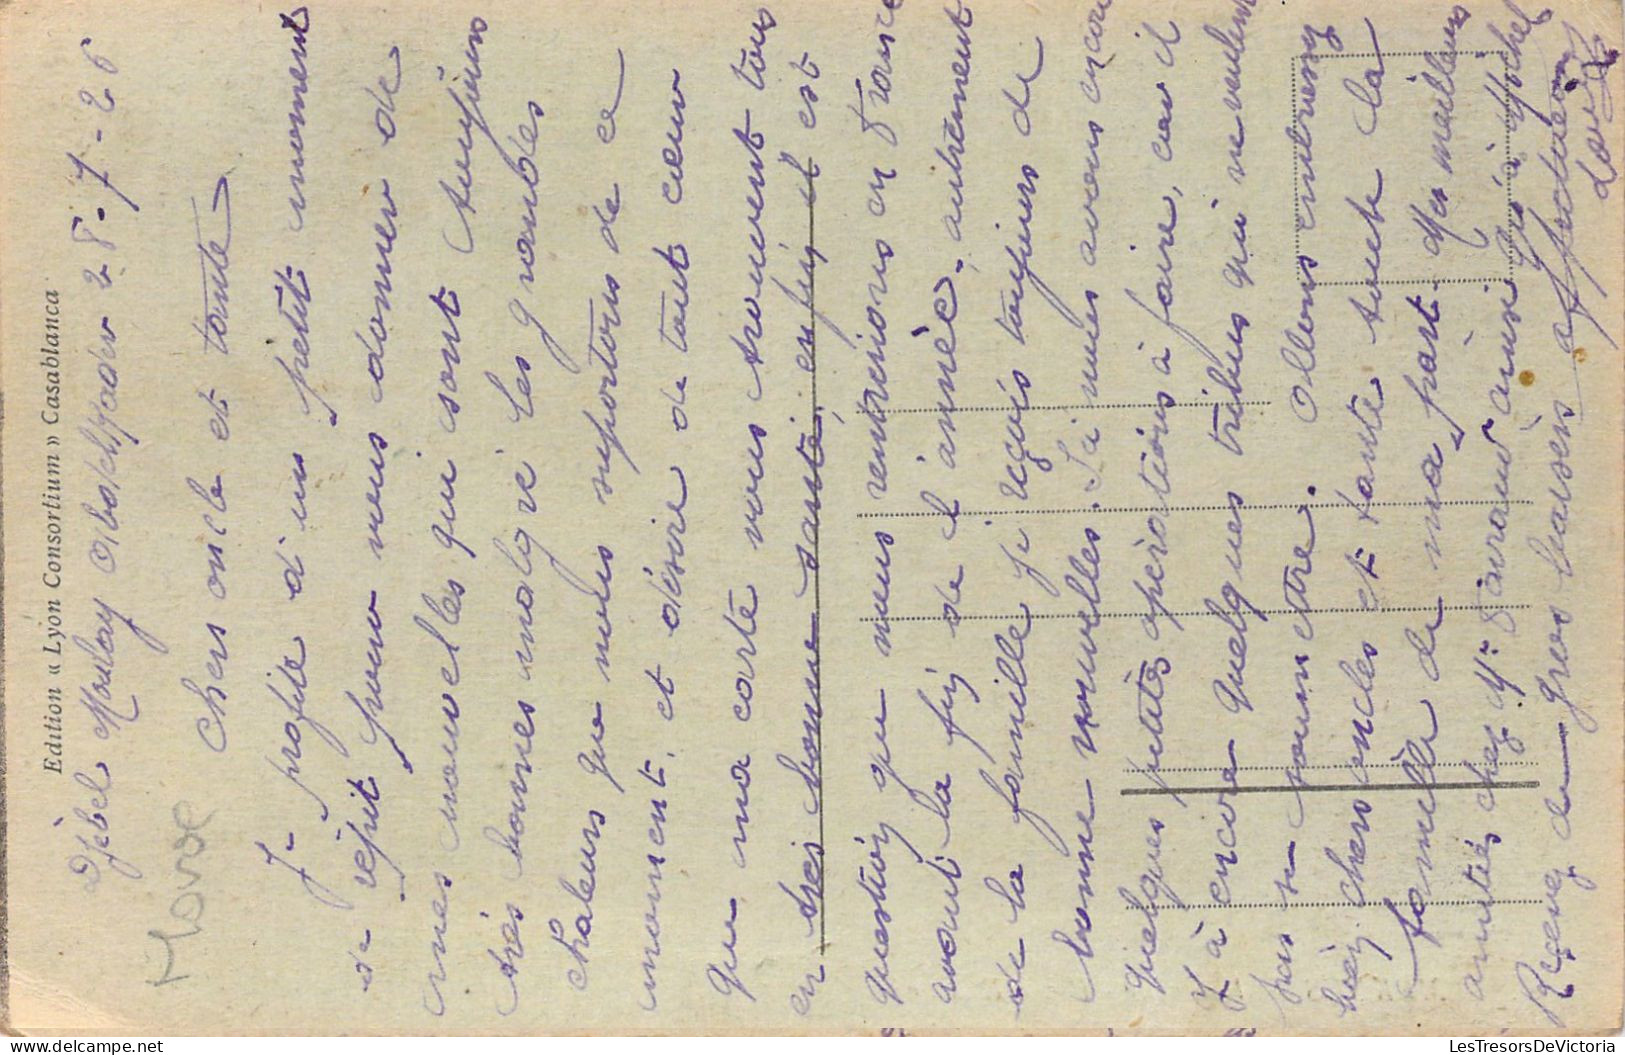 Edition « Lyon Consortium » Casablanca
Djebel Moulay Abdelkader 28-7-26
Maroc
Chers oncle et tante
Je profite d'un petit moment
de répit pour vous donner de
mes nouvelles qui sont toujours
très bonnes malgré les grandes
chaleurs que nous suportons de ce
moment, et désire de tout cœur
que ma carte vous trouvent tous
en très bonne santé, enfin il est
question que nous rentrerions en France
avant la fin de l'année, autrement
de la famille je reçois toujours de
bonne nouvelles. Ici nous avons encore
quelques petites opérations à faire, car il
y à encore quelques tribus qui ne veulent
pas se soumettre. Allons
bien chers oncles et tante toute la
famille de ma part. Mes meilleurs
amitiés chez Mr Faraud ainsi qu'à Michel
Recevez de gros baisers affectueux
Louis
LesTresorsDeVictoria.com